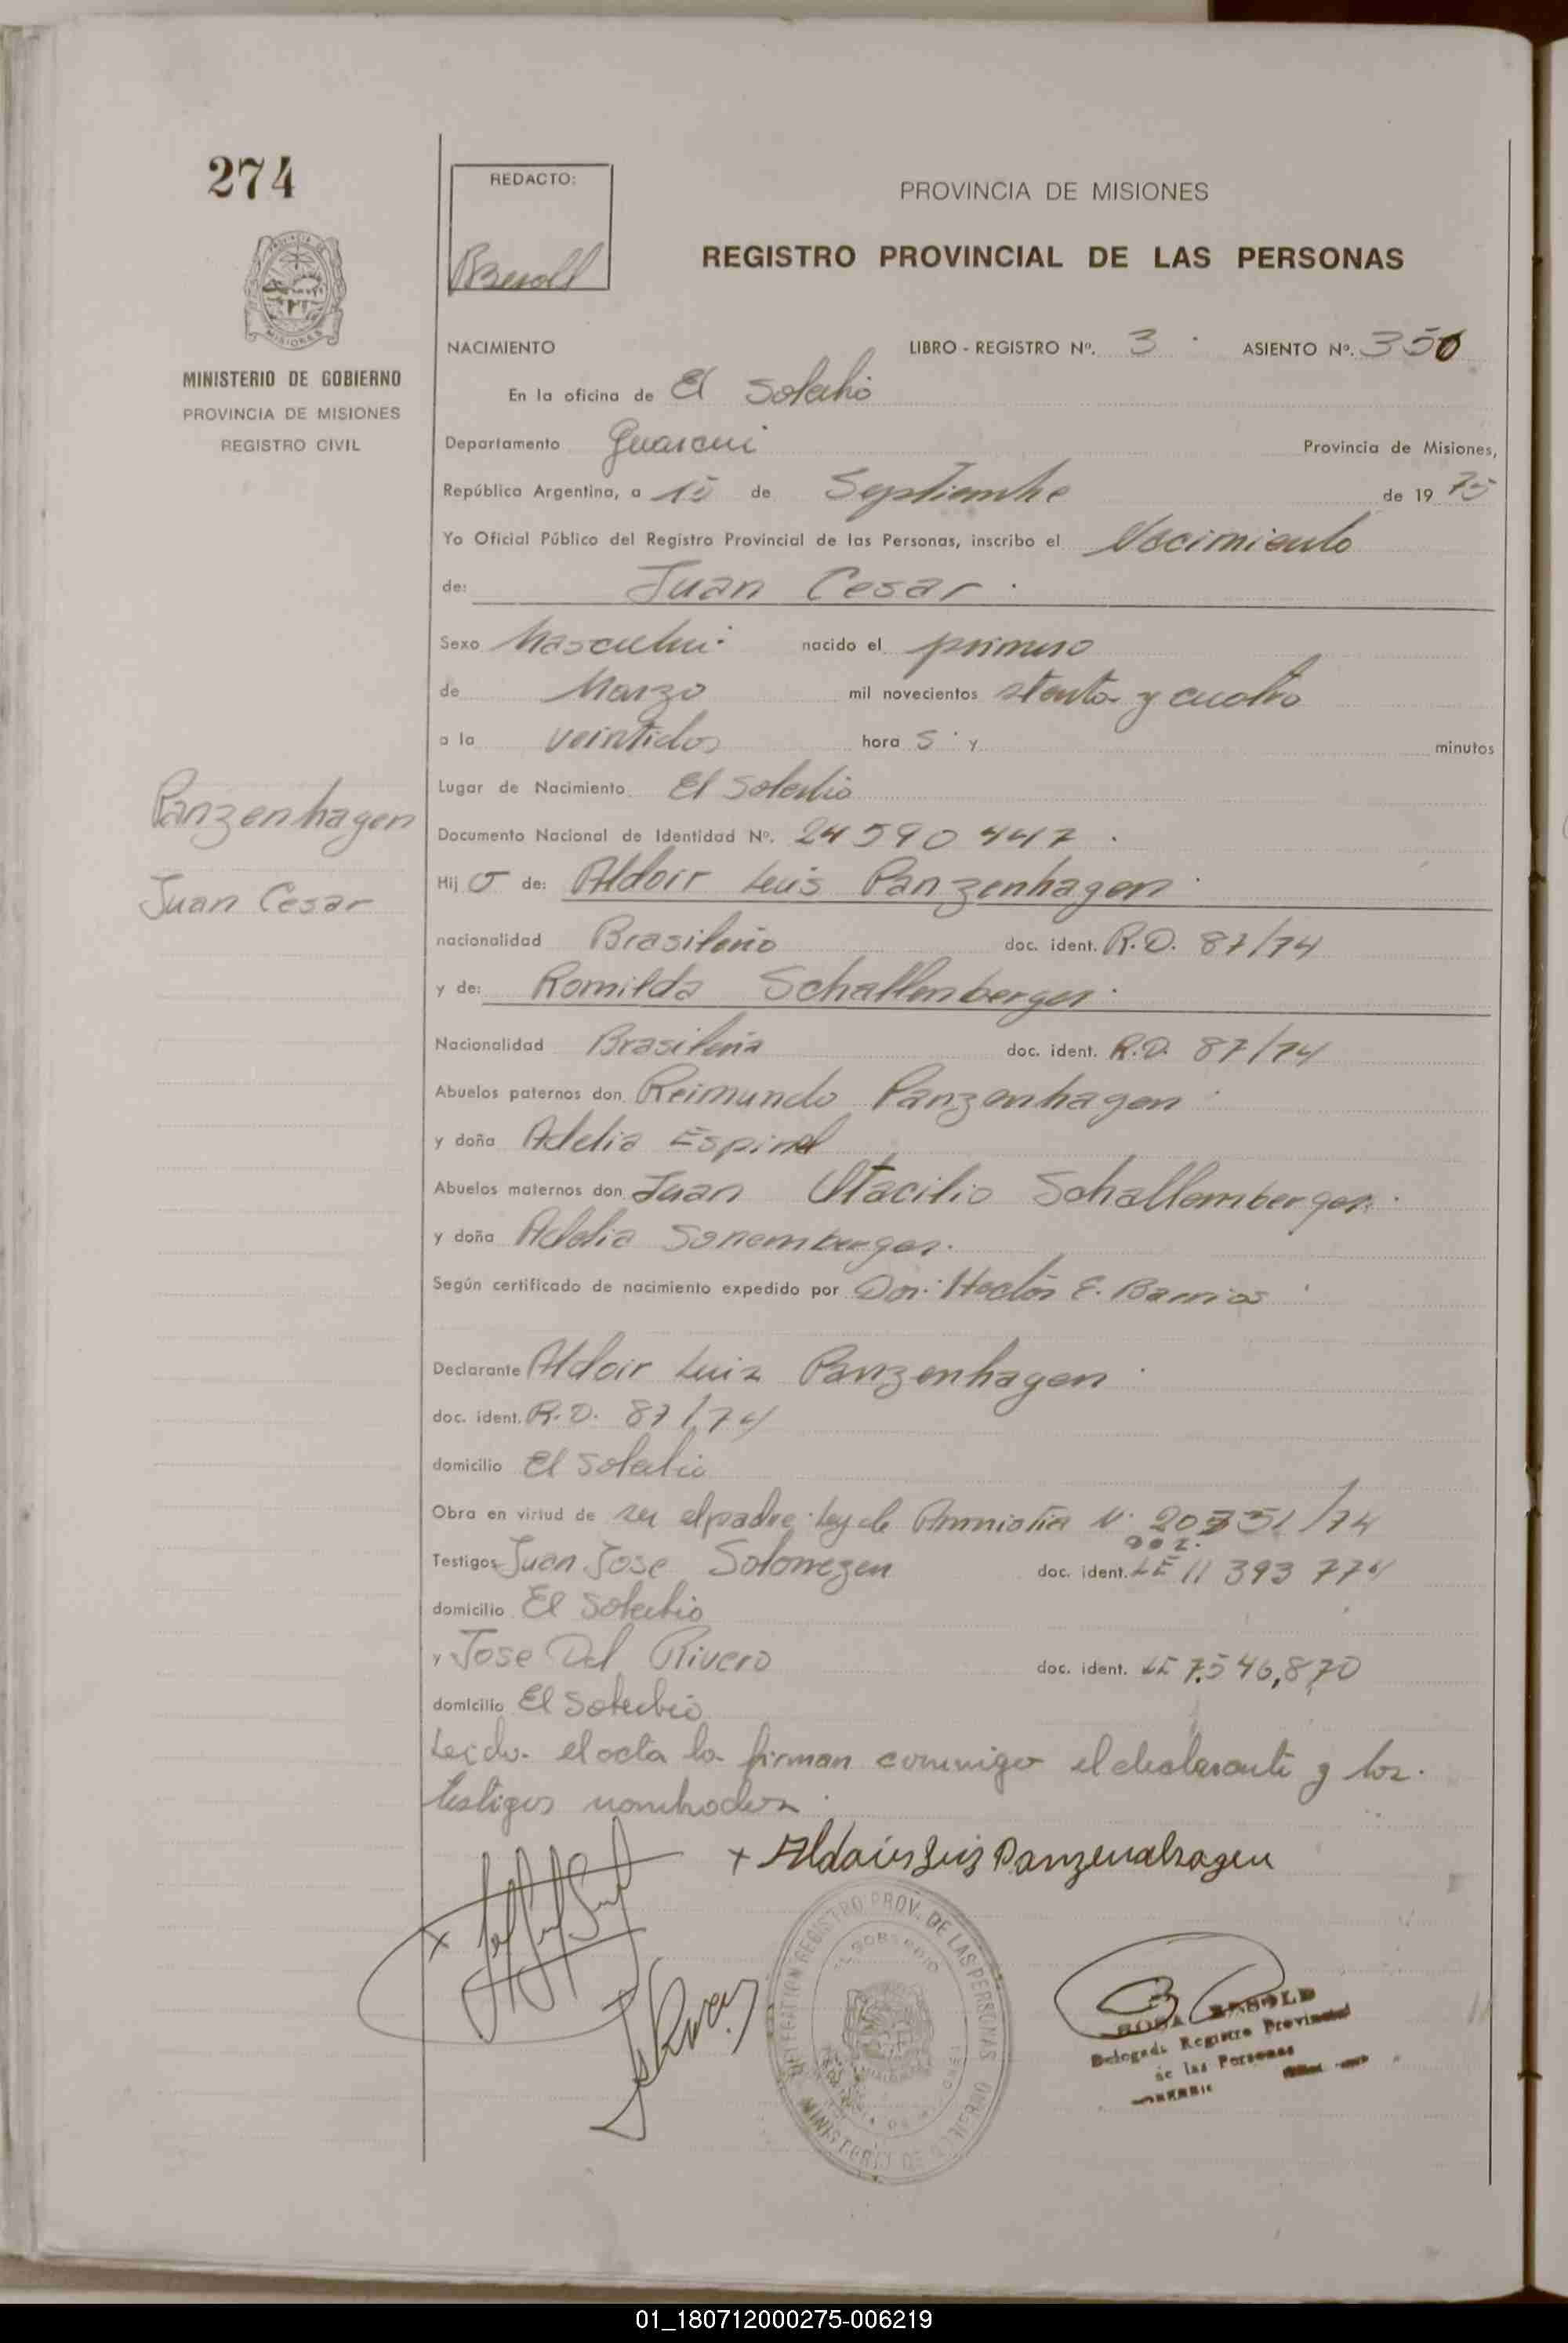 274
REDACTO:
PROVINCIA DE MISIONES
REGISTRO PROVINCIAL DE LAS PERSONAS
MISIONES
MINISTERIO DE GOBIERNO
PROVINCIA DE MISIONES
REGISTRO CIVIL
NACIMIENTO LIBRO - REGISTRO Nº. 3 ASIENTO Nº. 350
En la oficina de El Soberbio
Departamento Guarani Provincia de Misiones,
República Argentina, a 15 de Septiembre de 19 75
Yo Oficial Público del Registro Provincial de las Personas, inscribo el Nacimiento
de: Juan Cesar
Sexo Masculino nacido el primero
de Marzo mil novecientos setenta y cuatro
a la veintidos hora s y minutos
Lugar de Nacimiento El Soberbio
Panzenhagen
Juan Cesar
Documento Nacional de Identidad Nº. 24590447
Hij o de: Aldoir Luis Panzenhagen
nacionalidad Brasileño doc. ident. R.D. 87/74
y de: Romilda Schallenberger
Nacionalidad Brasileña doc. ident. R.D. 87/74
Abuelos paternos don Reimundo Panzenhagen
y doña Adelia Espinel
Abuelos maternos don Juan Otacilio Schallemberger
y doña Adelia Sonemberger
Según certificado de nacimiento expedido por Dor. Hector E. Barrios
Declarante Aldoir Luiz Panzenhagen
doc. ident. R.D. 87/74
domicilio El Soberbio
Obra en virtud de ser el padre Ley de Amnistia N. /74
Testigos Juan Jose doc. ident. LE 11 393 774
domicilio El Soberbio
y Jose Del Rivero doc. ident. LE 7.546,870
domicilio El Soberbio
Leida el acta la firman conmigo el declarante y los
testigos nombrados
x Aldoir Luis Panzenahagen
x
DELEGACION REGISTRO PROV. DE LAS PERSONAS
EL SOBERBIO
MINISTERIO DE
ROSA
Delegada Registro Provincial
de las Personas
01_180712000275-006219